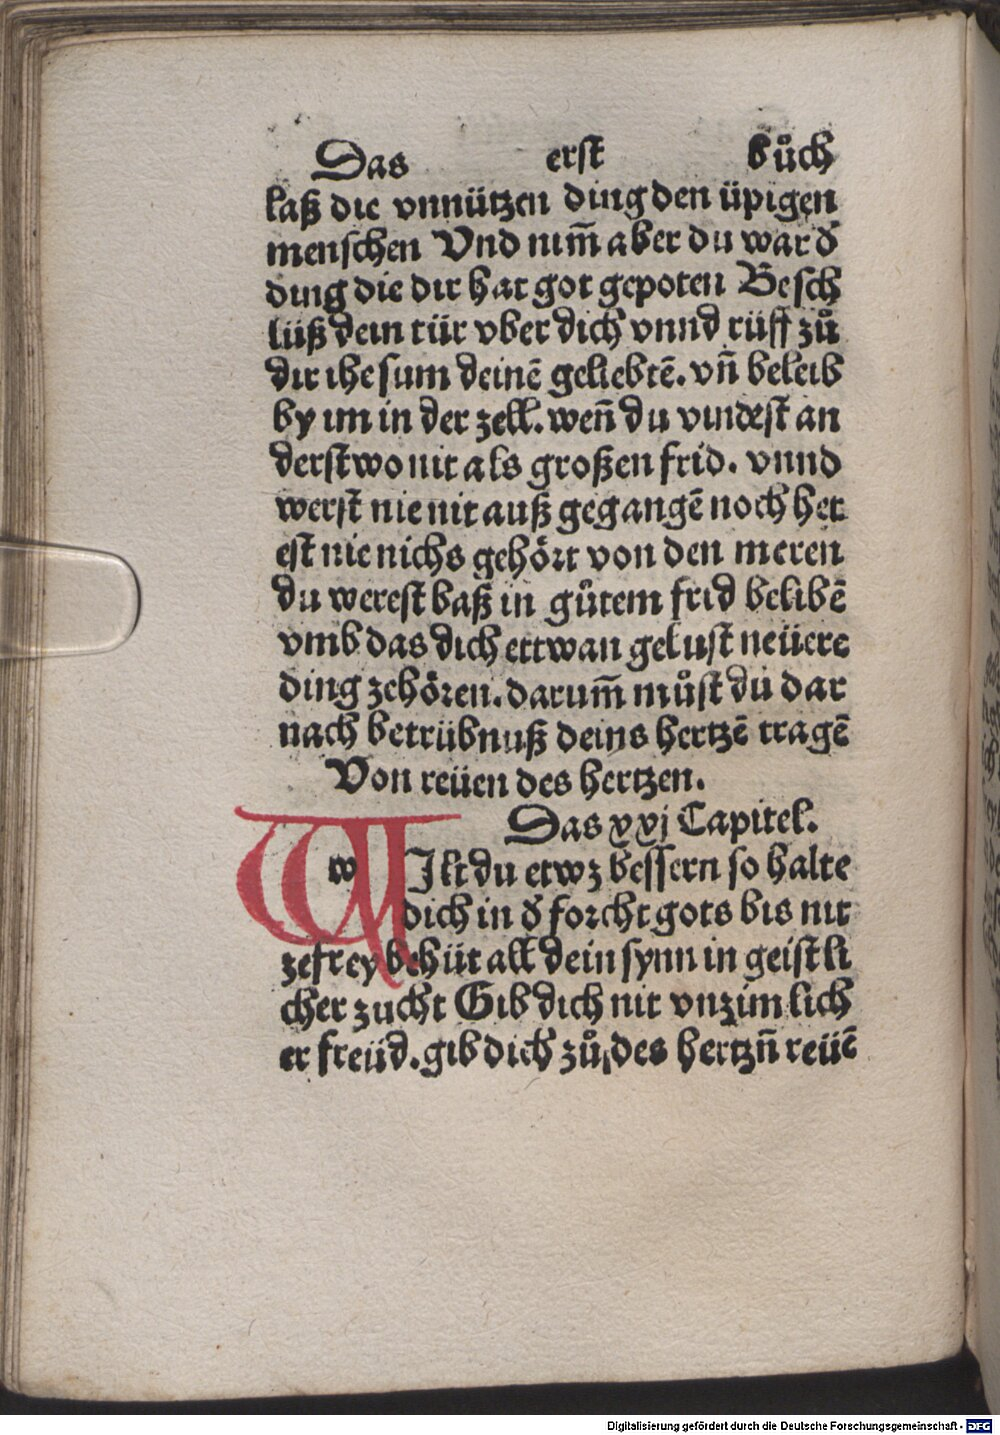 Das erst bůch
laß die vnnützen ding den üpigen
menschen Vnd nim̄ aber du war d̕
ding die dir hat got gepoten Besch
lüß dein tür vber dich vnnd rüff zů
dir ihesum deinē geliebtē. vn̄ beleib
by im in der zell. wen̄ du vindest an
derstwo nit als großen frid. vnnd
werst nie nit auß gegangē noch het
est nie nichs gehört von den meren
du werest baß in gůtem frid belibē
vmb das dich ettwan gelust neüere
ding zehören. darum̄ můst du dar
nach betrübnuß deins hertzē tragē
Von reüen des hertzen.
Das xxj Capitel.
w WIlt du etwz bessern so halte
dich in d̕ forcht gots bis nit
zefrey behüt all dein synn in geistli
cher zucht Gib dich nit vnzimlich
er freüd. gib dich zů des hertzn̄ reüē
Digitalisierung gefördert durch die Deutsche Forschungsgemeinschaft - DFG